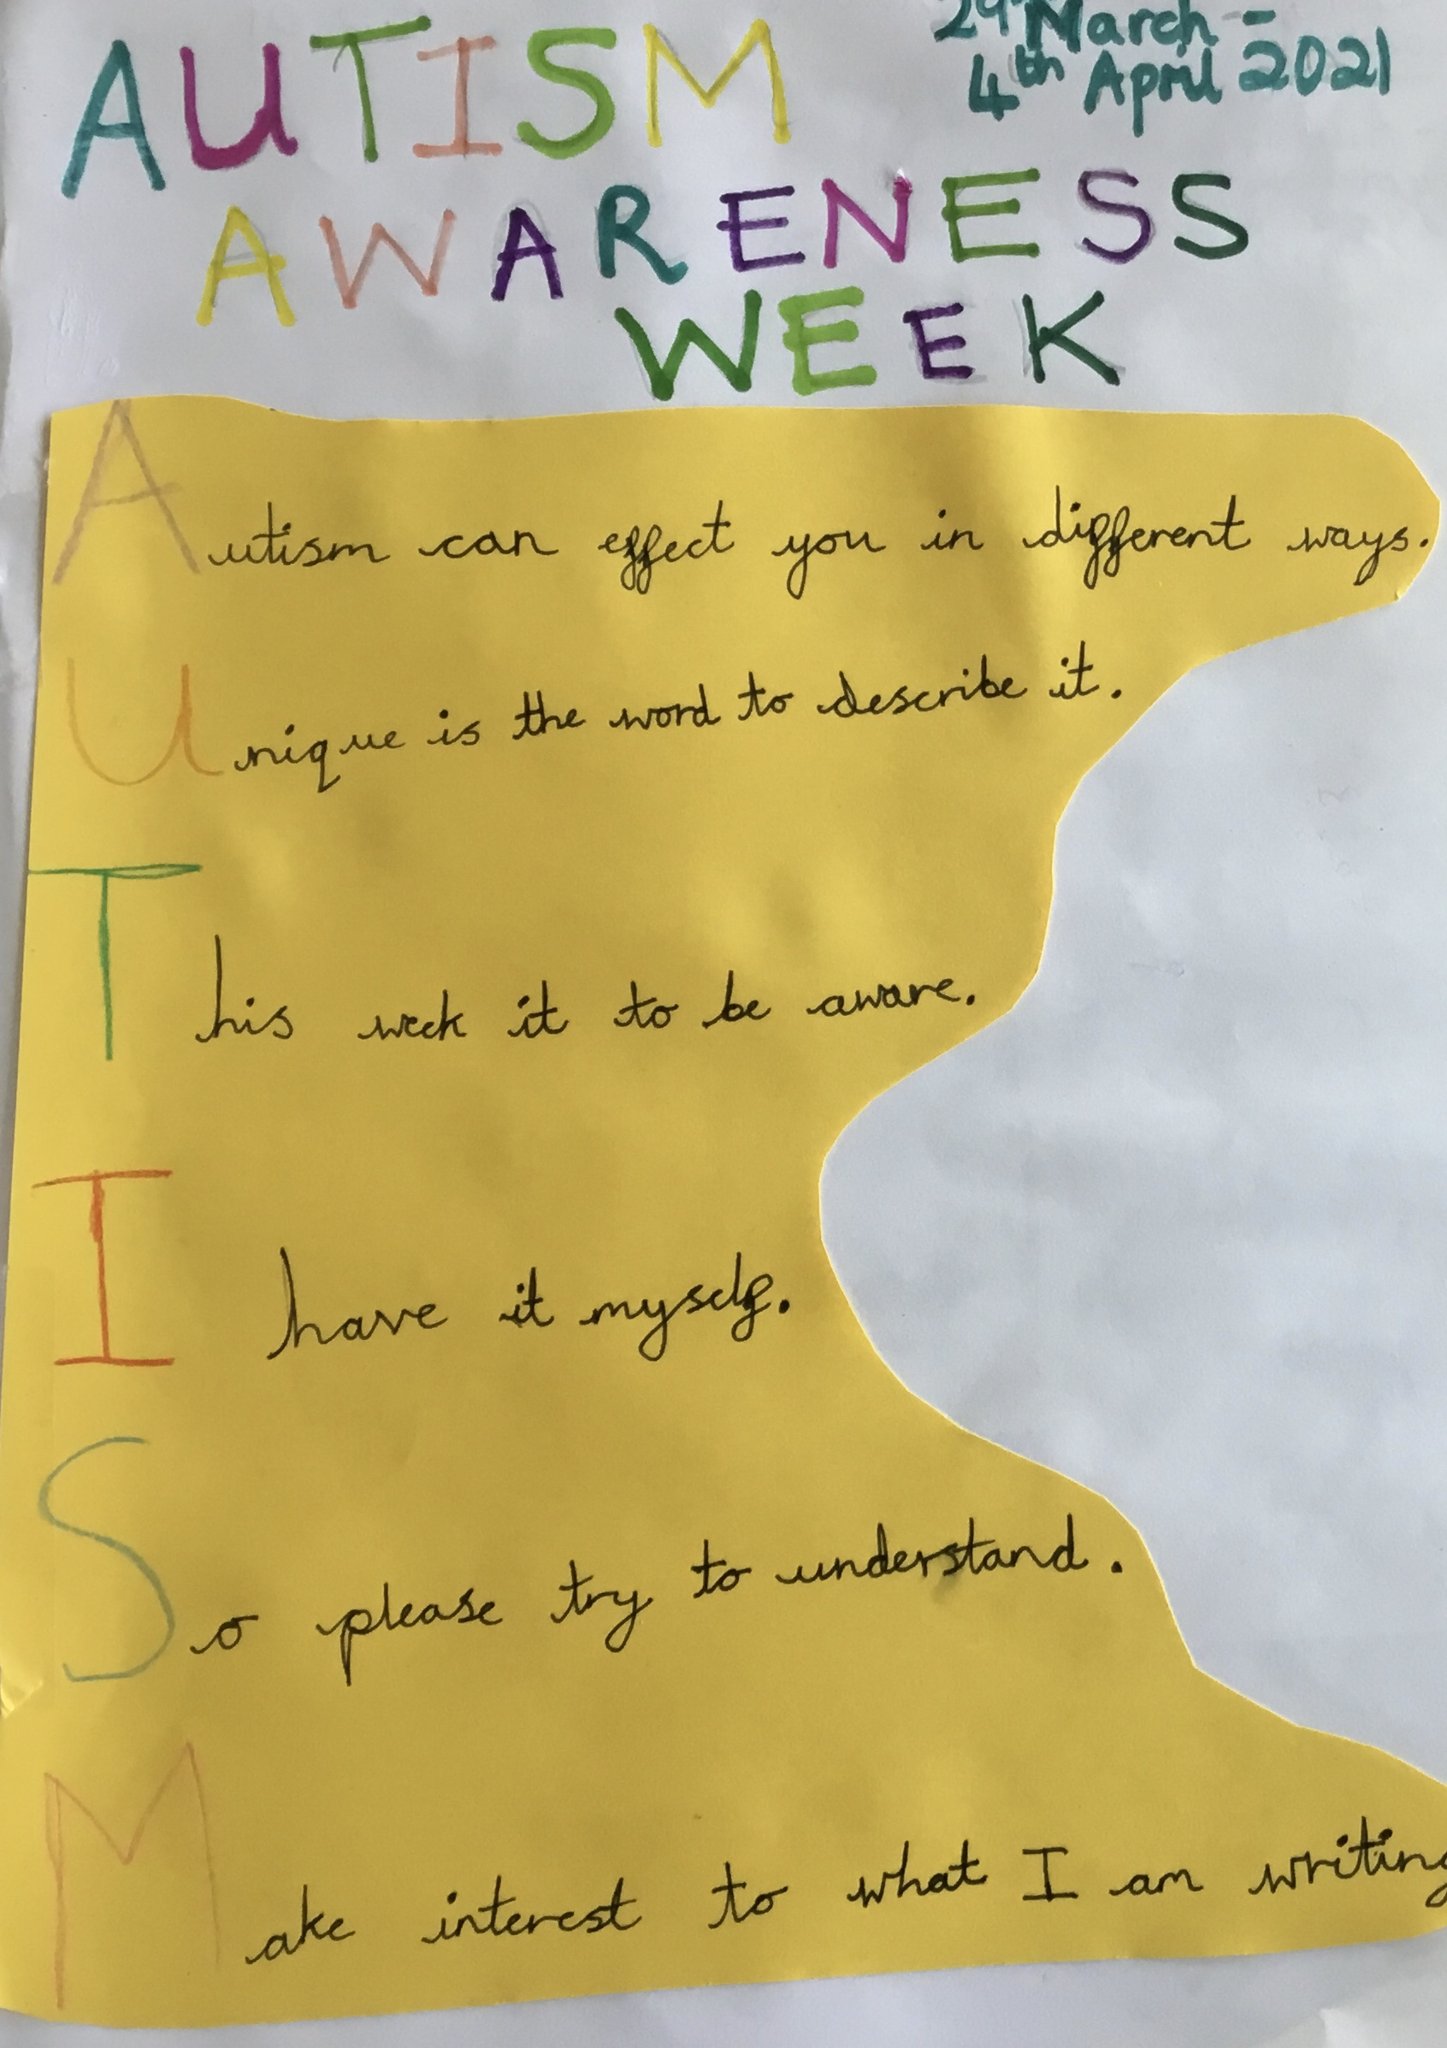 AUTISM
29th March -
4th April 2021
AWARENESS
WEEK
Autism can effect you in different ways.
Unique is the word to describe it.
This week it to be aware.
I have it myself.
So please try to understand.
Make interest to what I am writing